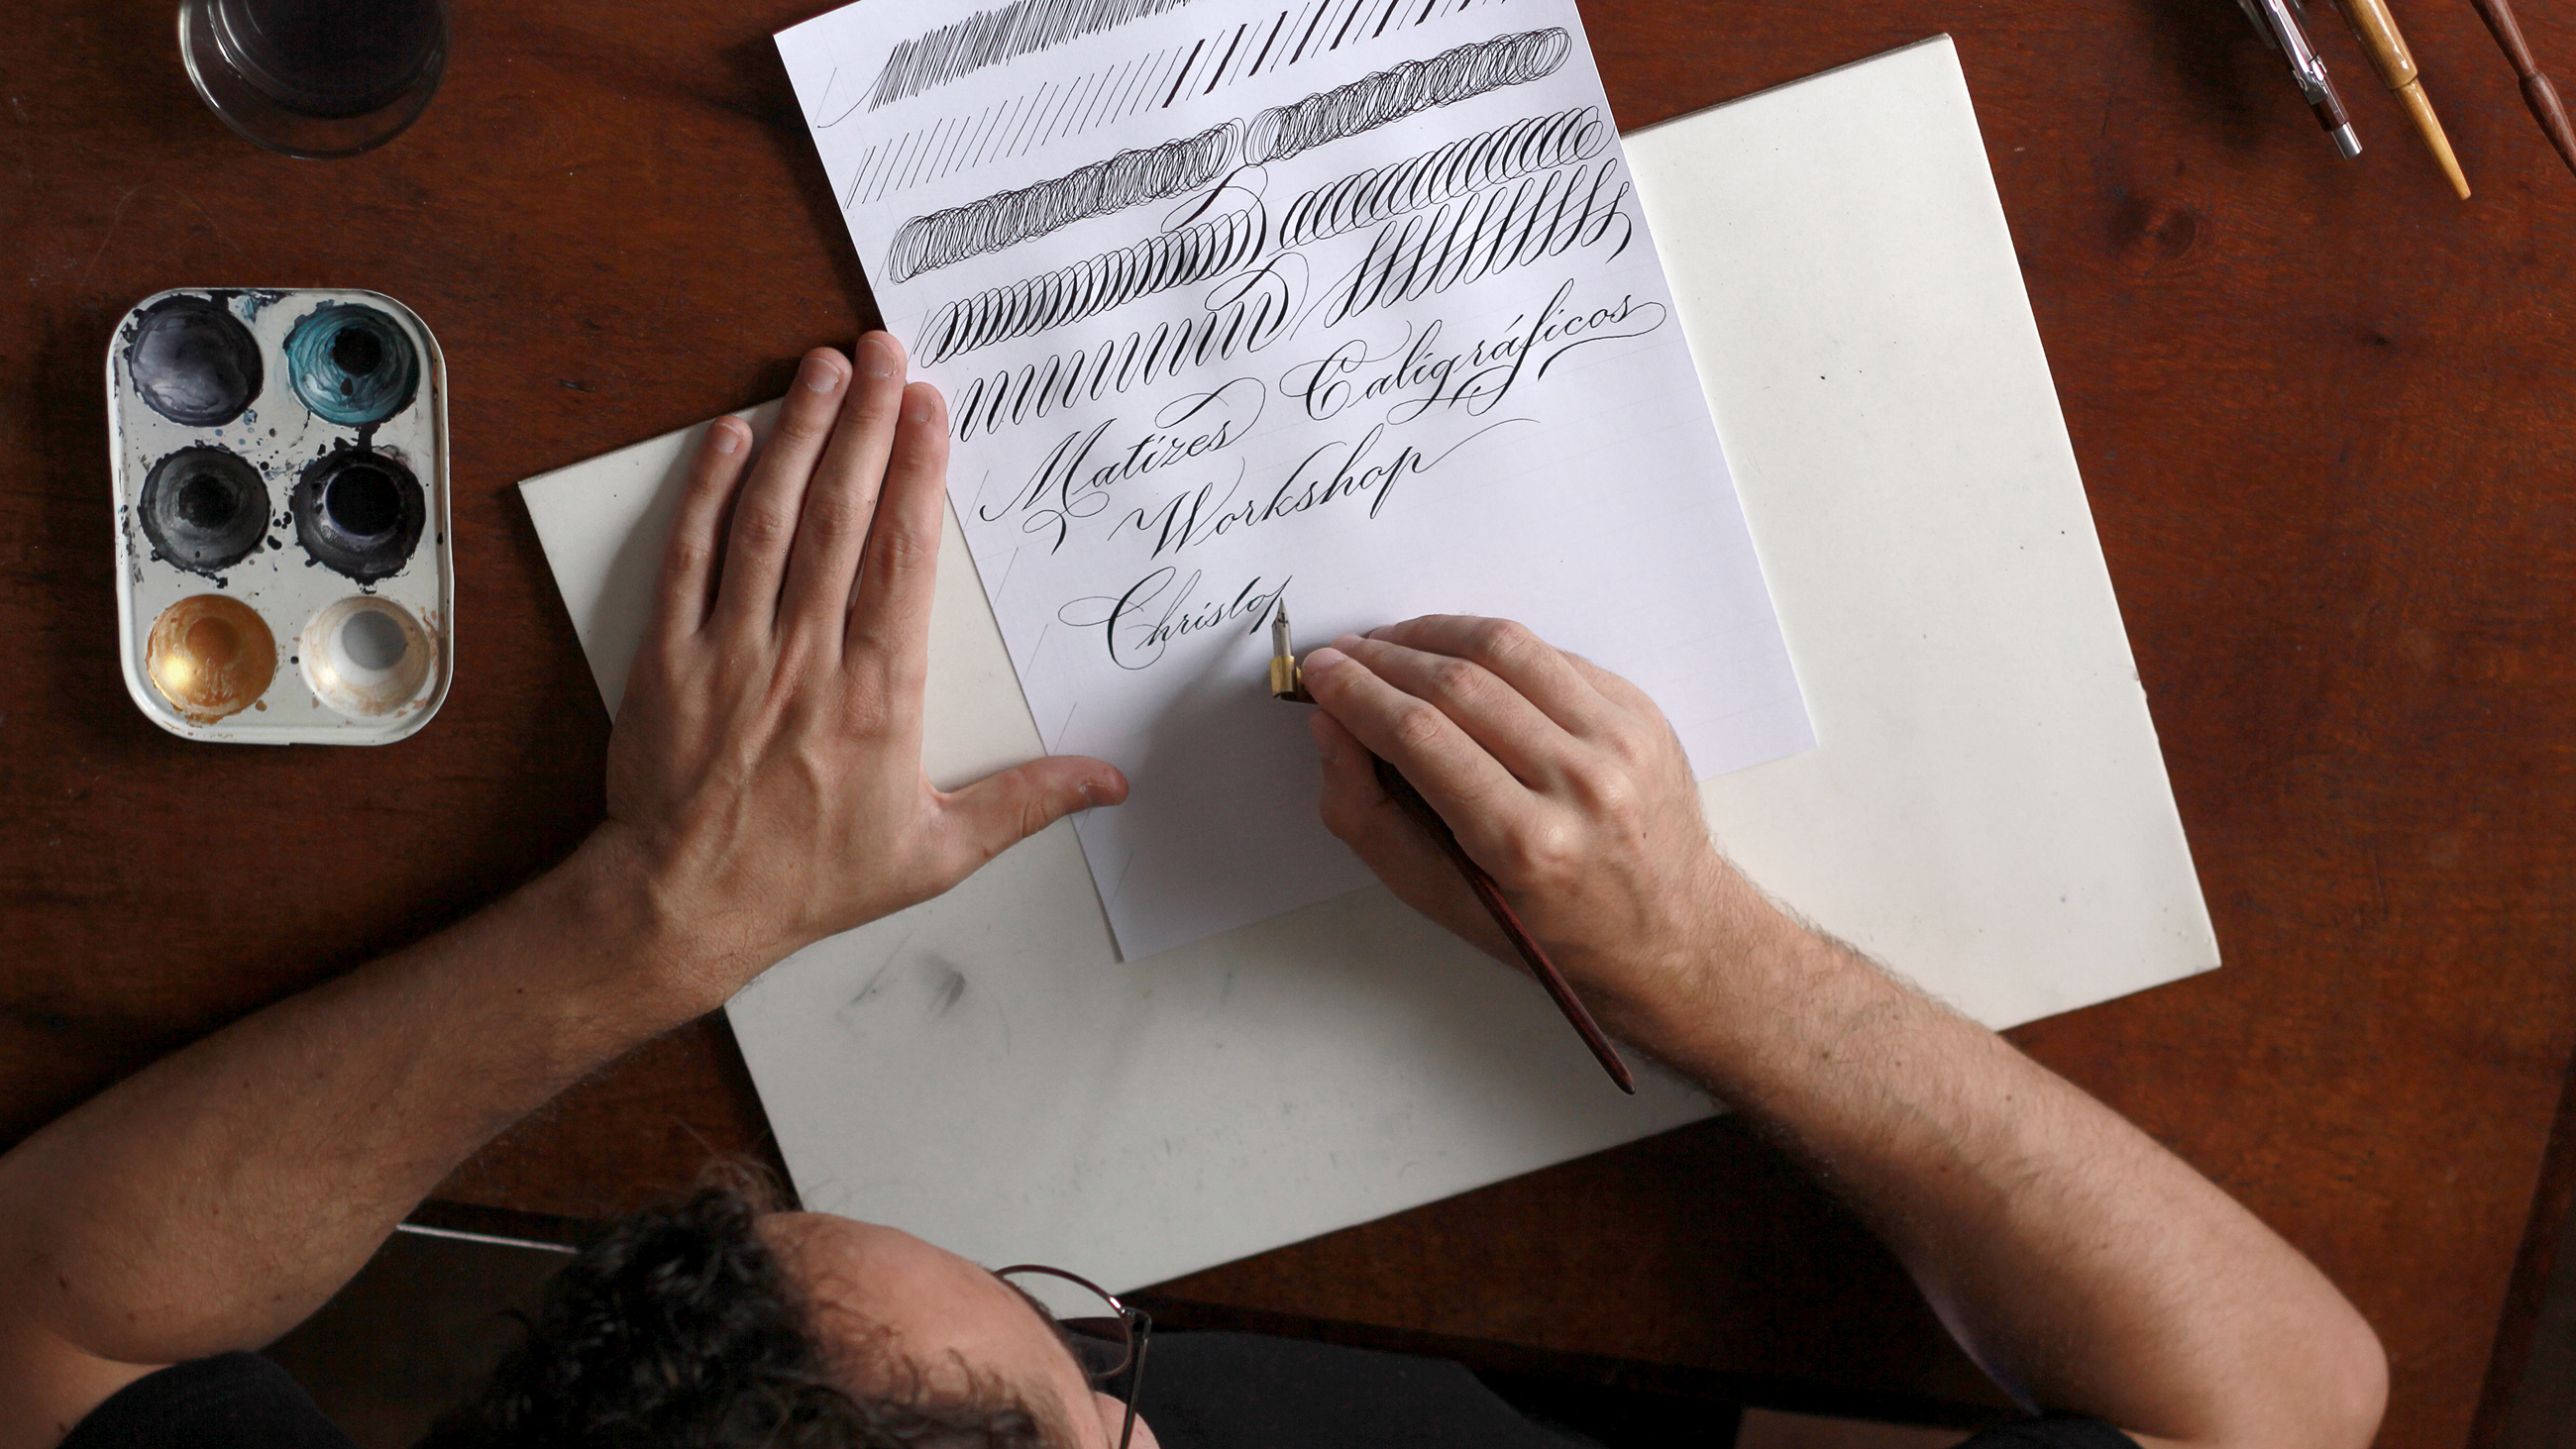 Matizes Caligráficos
Workshop
Christop